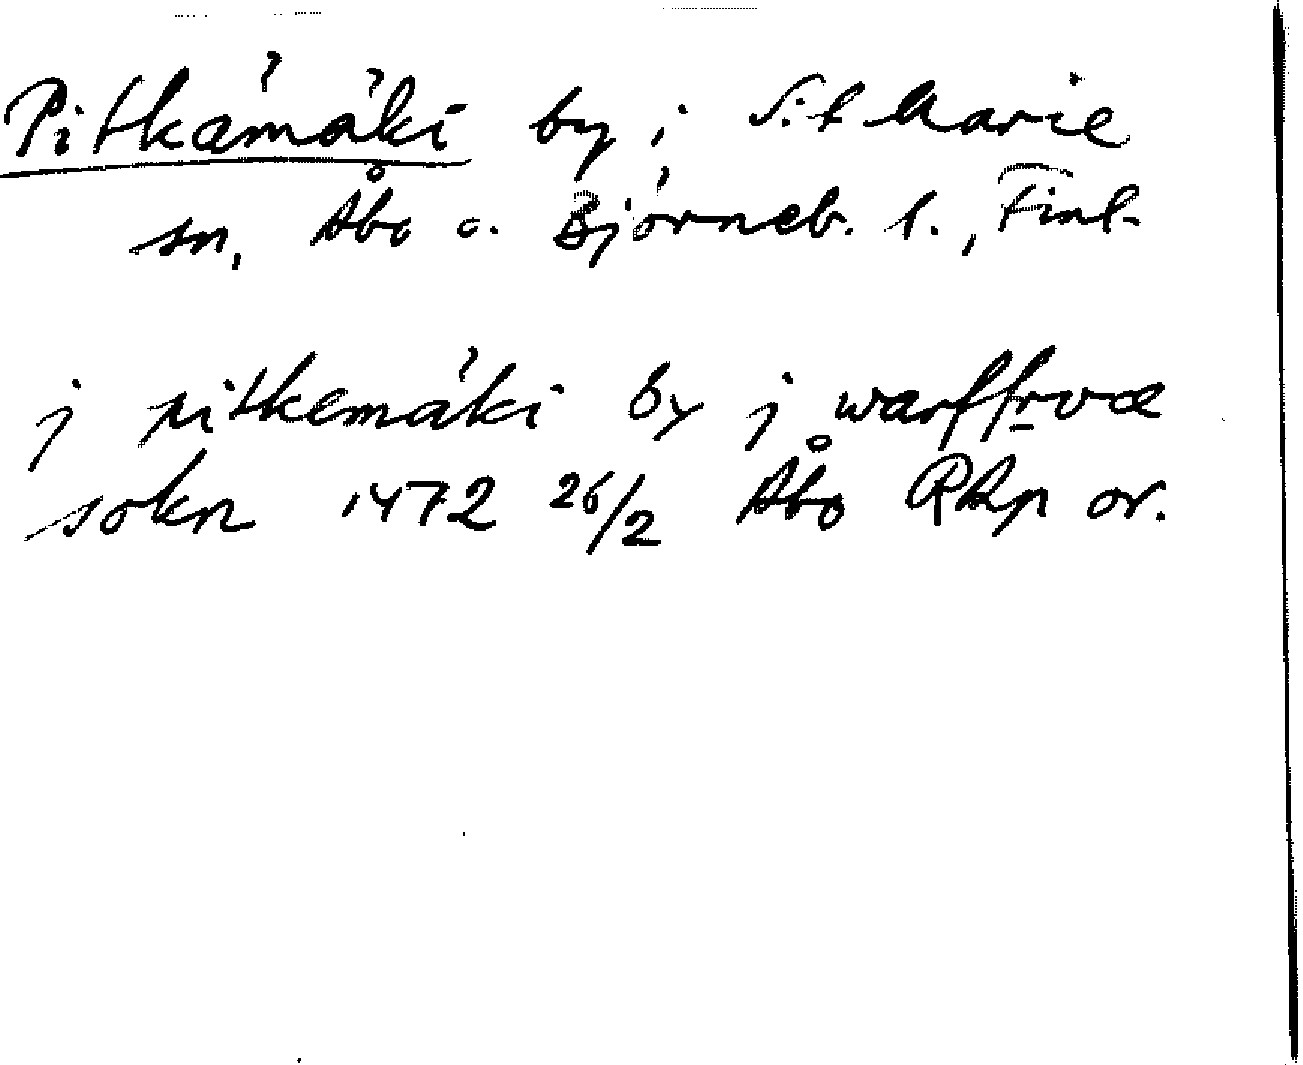 Pitkämäki by i S:t Marie
sn, Åbo o. Björneb. l., Finl.
j pitkemäki by j warffrvæ
sokn 1472 26/2 Åbo RAp or.